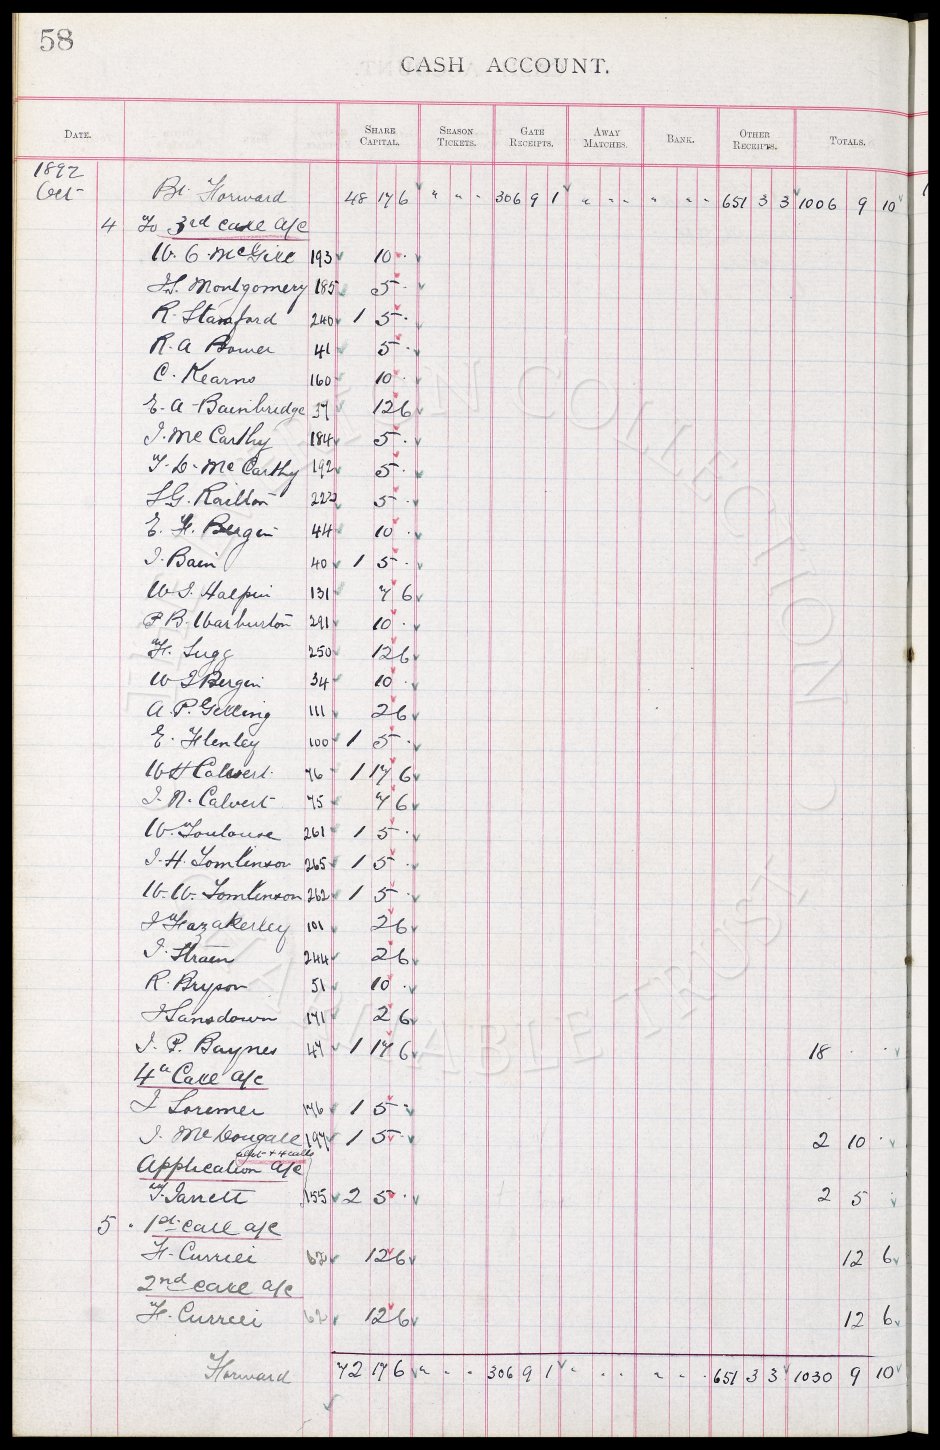 58
CASH ACCOUNT.
DATE. SHARE CAPITAL. SEASON TICKETS. GATE RECEIPTS. AWAY MATCHES. BANK. OTHER RECEIPTS. TOTALS.
1892
Oct Bt. Forward 48 17 6 " " " 306 9 1 " " " " " " 651 3 3 1006 9 10
4 To 3rd call a/c
W. C. McGill 193 10 .
H. Montgomery 185 5 .
R. Stamford 240 1 5 .
R. A Bower 41 5 .
C. Kearns 160 10 .
E. A. Bainbridge 37 12 6
J. McCarthy 184 5 .
T. D. McCarthy 192 5 .
S G. Railton 222 5 .
E. H. Bergin 44 10 .
J. Bain 40 1 5 .
W. J. Halpin 131 7 6
P B. Warburton 291 10 .
H. Sugg 250 12 6
W J Bergin 34 10 .
A. P. Gelling 111 2 6
E. Henley 100 1 5 .
W H Calvert. 76 1 17 6
J. N. Calvert 75 7 6
W. Toulouse 261 1 5 .
J. H. Tomlinson 265 1 5 .
W. W. Tomlinson 262 1 5 .
J Fazakerley 101 2 6
J. Straen 244 2 6
R. Bryson 51 10 .
J Lansdown 171 2 6
J. P. Baynes 47 1 17 6 18 . .
4th Call a/c
J Loremer 176 1 5 .
J. McDougall 197 1 5 . 2 10 .
allot + 4 calls
Application a/c
T. Jarrett 155 2 5 . 2 5 .
5 . 1st call a/c
H. Currier 62 12 6 12 6
2nd call a/c
H. Currier 62 12 6 12 6
Forward 72 17 6 " " " 306 9 1 " " " " " " 651 3 3 1030 9 10
COLLECTION
CHARITABLE TRUST